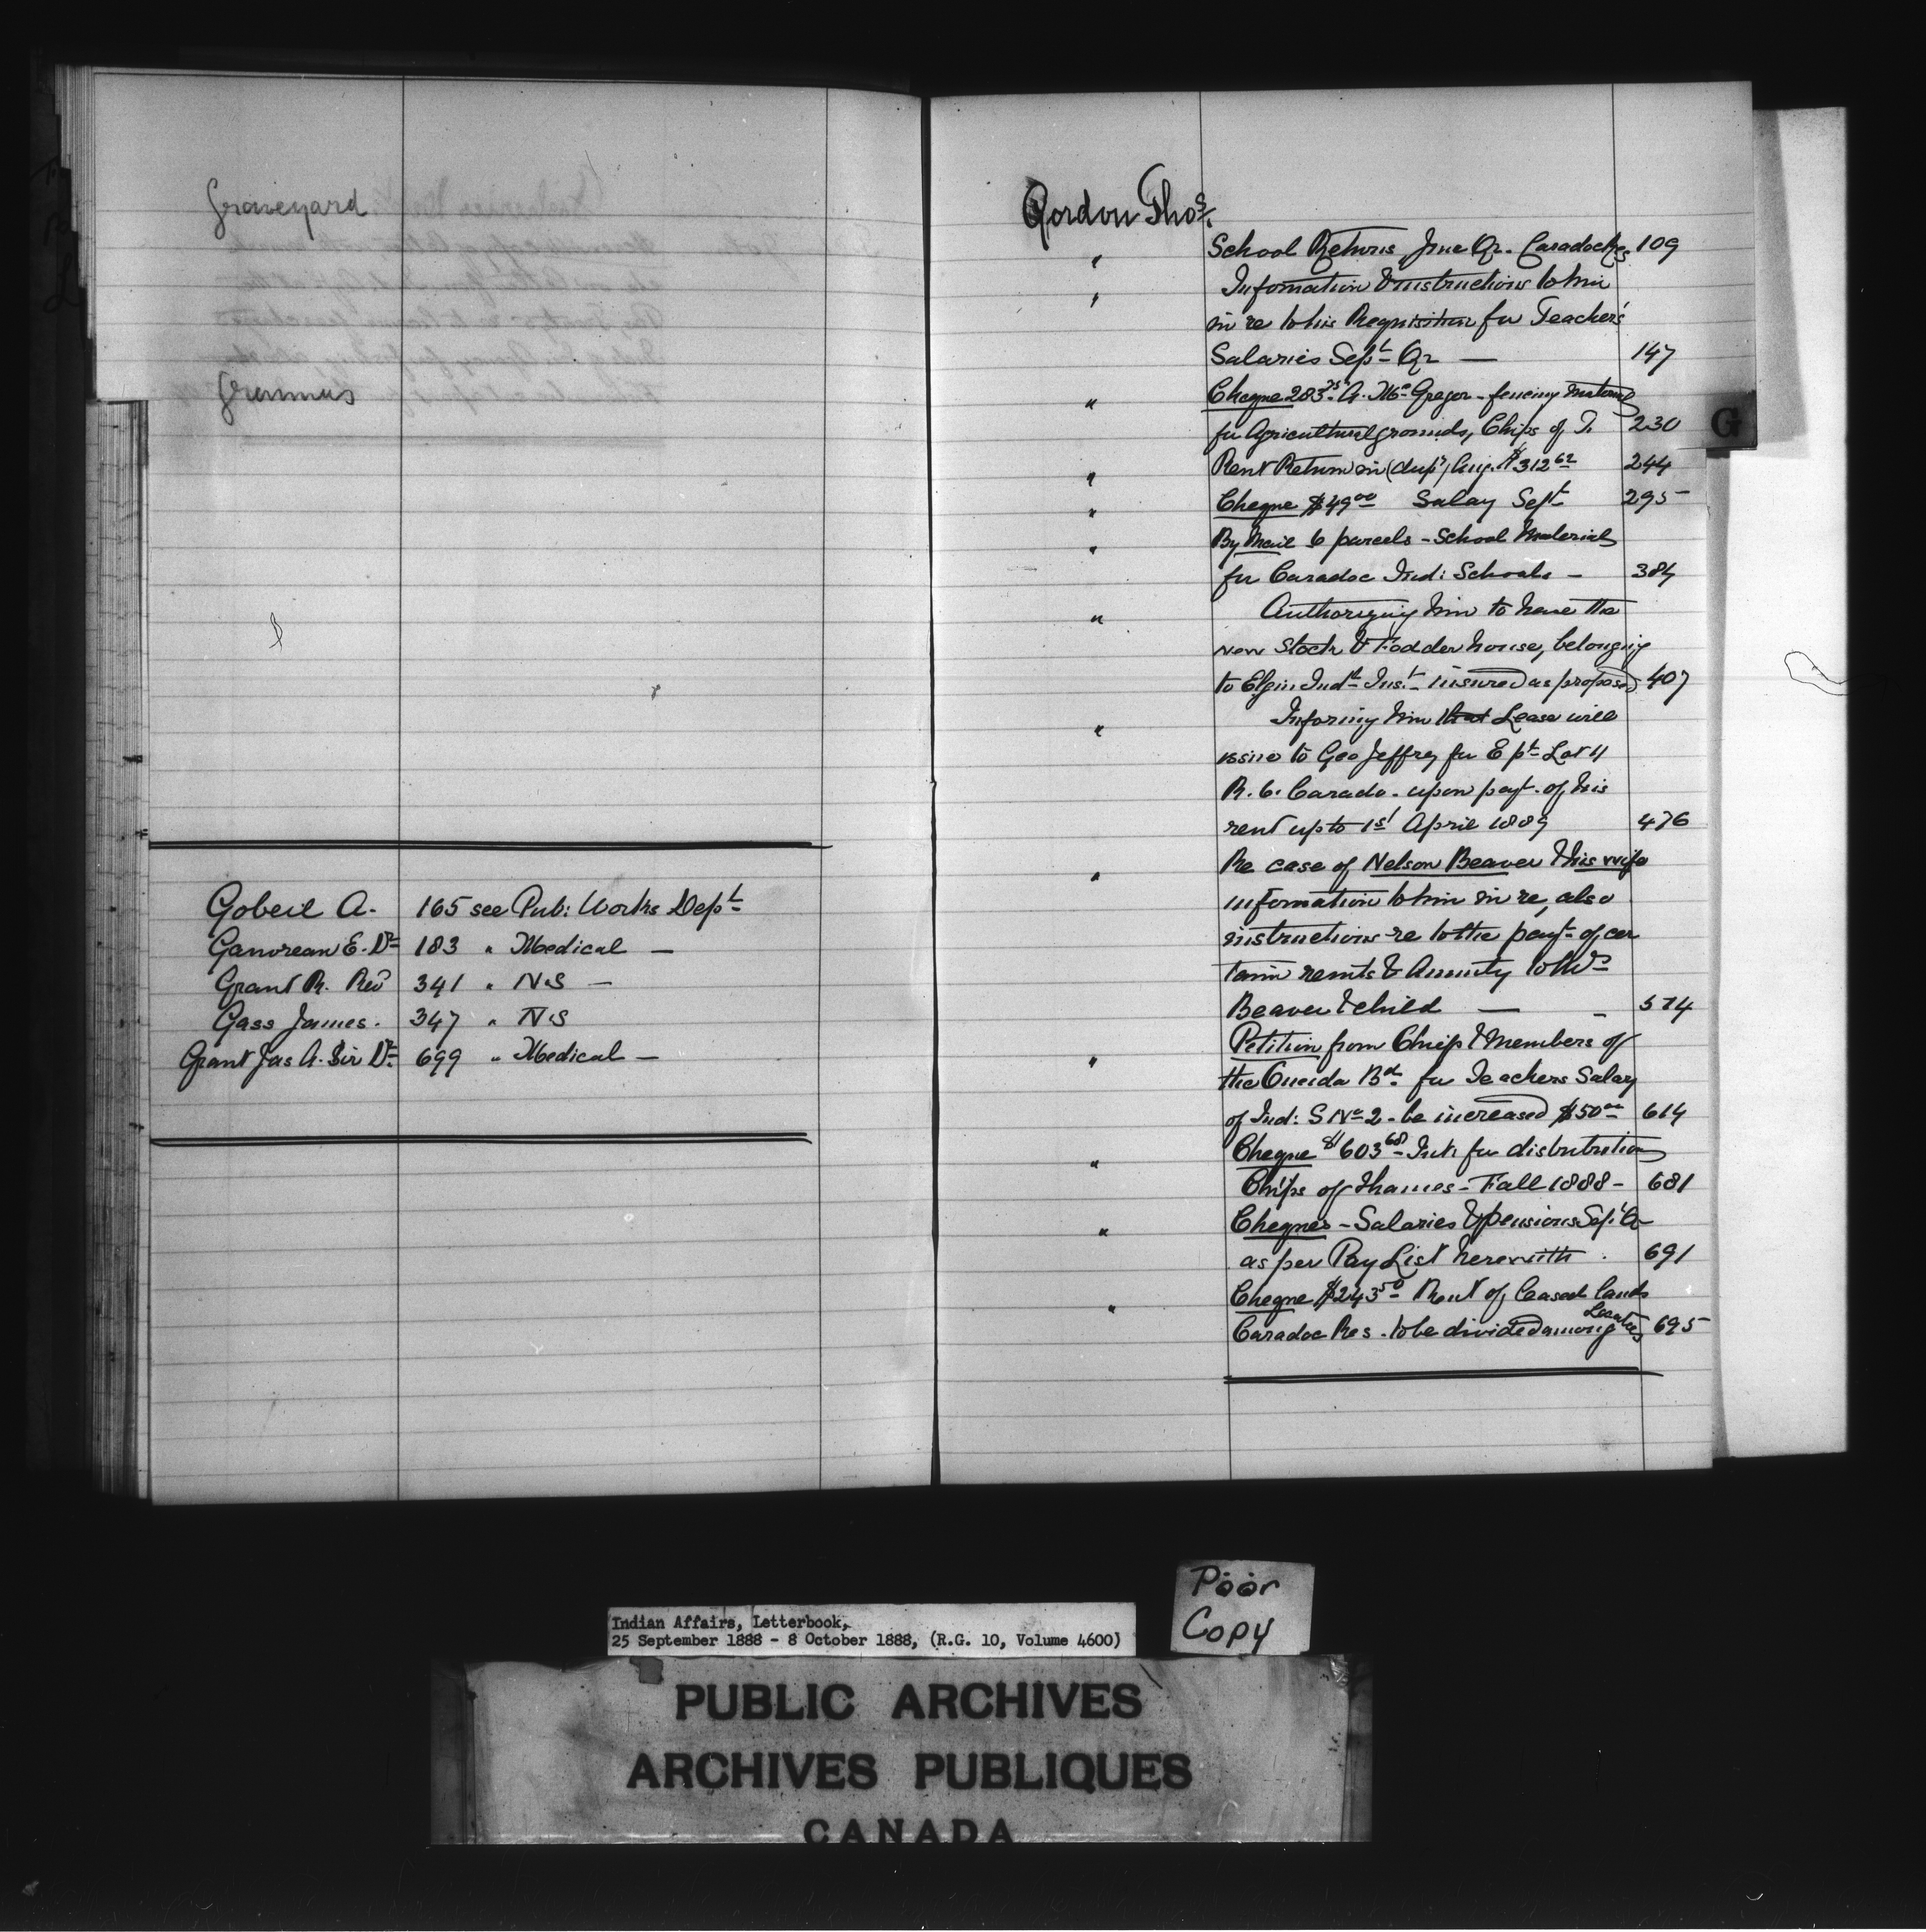 Graveyard
Grammars
Gobeil A. 165 see Pub: Works Dept
Ganvreau E. Dr 183 " Medical —
Grant R. Rev 341 " N.S —
Gass James. 347 " N.S
Grant Jas A. Sir Dr 699 " Medical —
Gordon Thos.
" School Returns June Qr. Caradoc Res 109
" Information & instructions to him
in re to his Requisition for Teachers'
Salaries Sept Qr — 147
" Cheque 283.75 A. McGregor - fencing material
for Agricultural grounds, Chips of T. 230
" Rent Return in (dup) Aug. $312 62 244
" Cheque $49 00 Salay Sept 295
" By Mail 6 parcels - School Material
for Caradoc Ind: Schools - 384
" Authorizing him to have the
new Stock & Fodder house, belonging
to Elgin Indl Inst. insured as proposed 407
" Informg him that Lease will
issue to Geo Jeffrey for E pt Lot 11
R. 6. Carado. upon payt. of his
rent up to 1st April 1889 476
" Re case of Nelson Beaver & his wife
information to him in re, also
instructions re to the payt. of cer
tain rents & Annuity to Mrs
Beaver & child — - 574
" Petition from Chief & Members of
the Oneida Bd. for Teachers Salay
of Ind: S No 2 - be increased $50 00 614
" Cheque $603 68 - Int: for distribution
Chips of Thames - Fall 1888 - 681
" Cheques - Salaries & pensions Sept Qr
as per Pay List herewith . 691
" Cheque $243 50 - Rent of leased lands
Caradoc Res. to be divided among Locatees 695
G
Poor
Copy
Indian Affairs, Letterbook,
25 September 1888 - 8 October 1888, (R.G. 10, Volume 4600)
PUBLIC ARCHIVES
ARCHIVES PUBLIQUES
CANADA